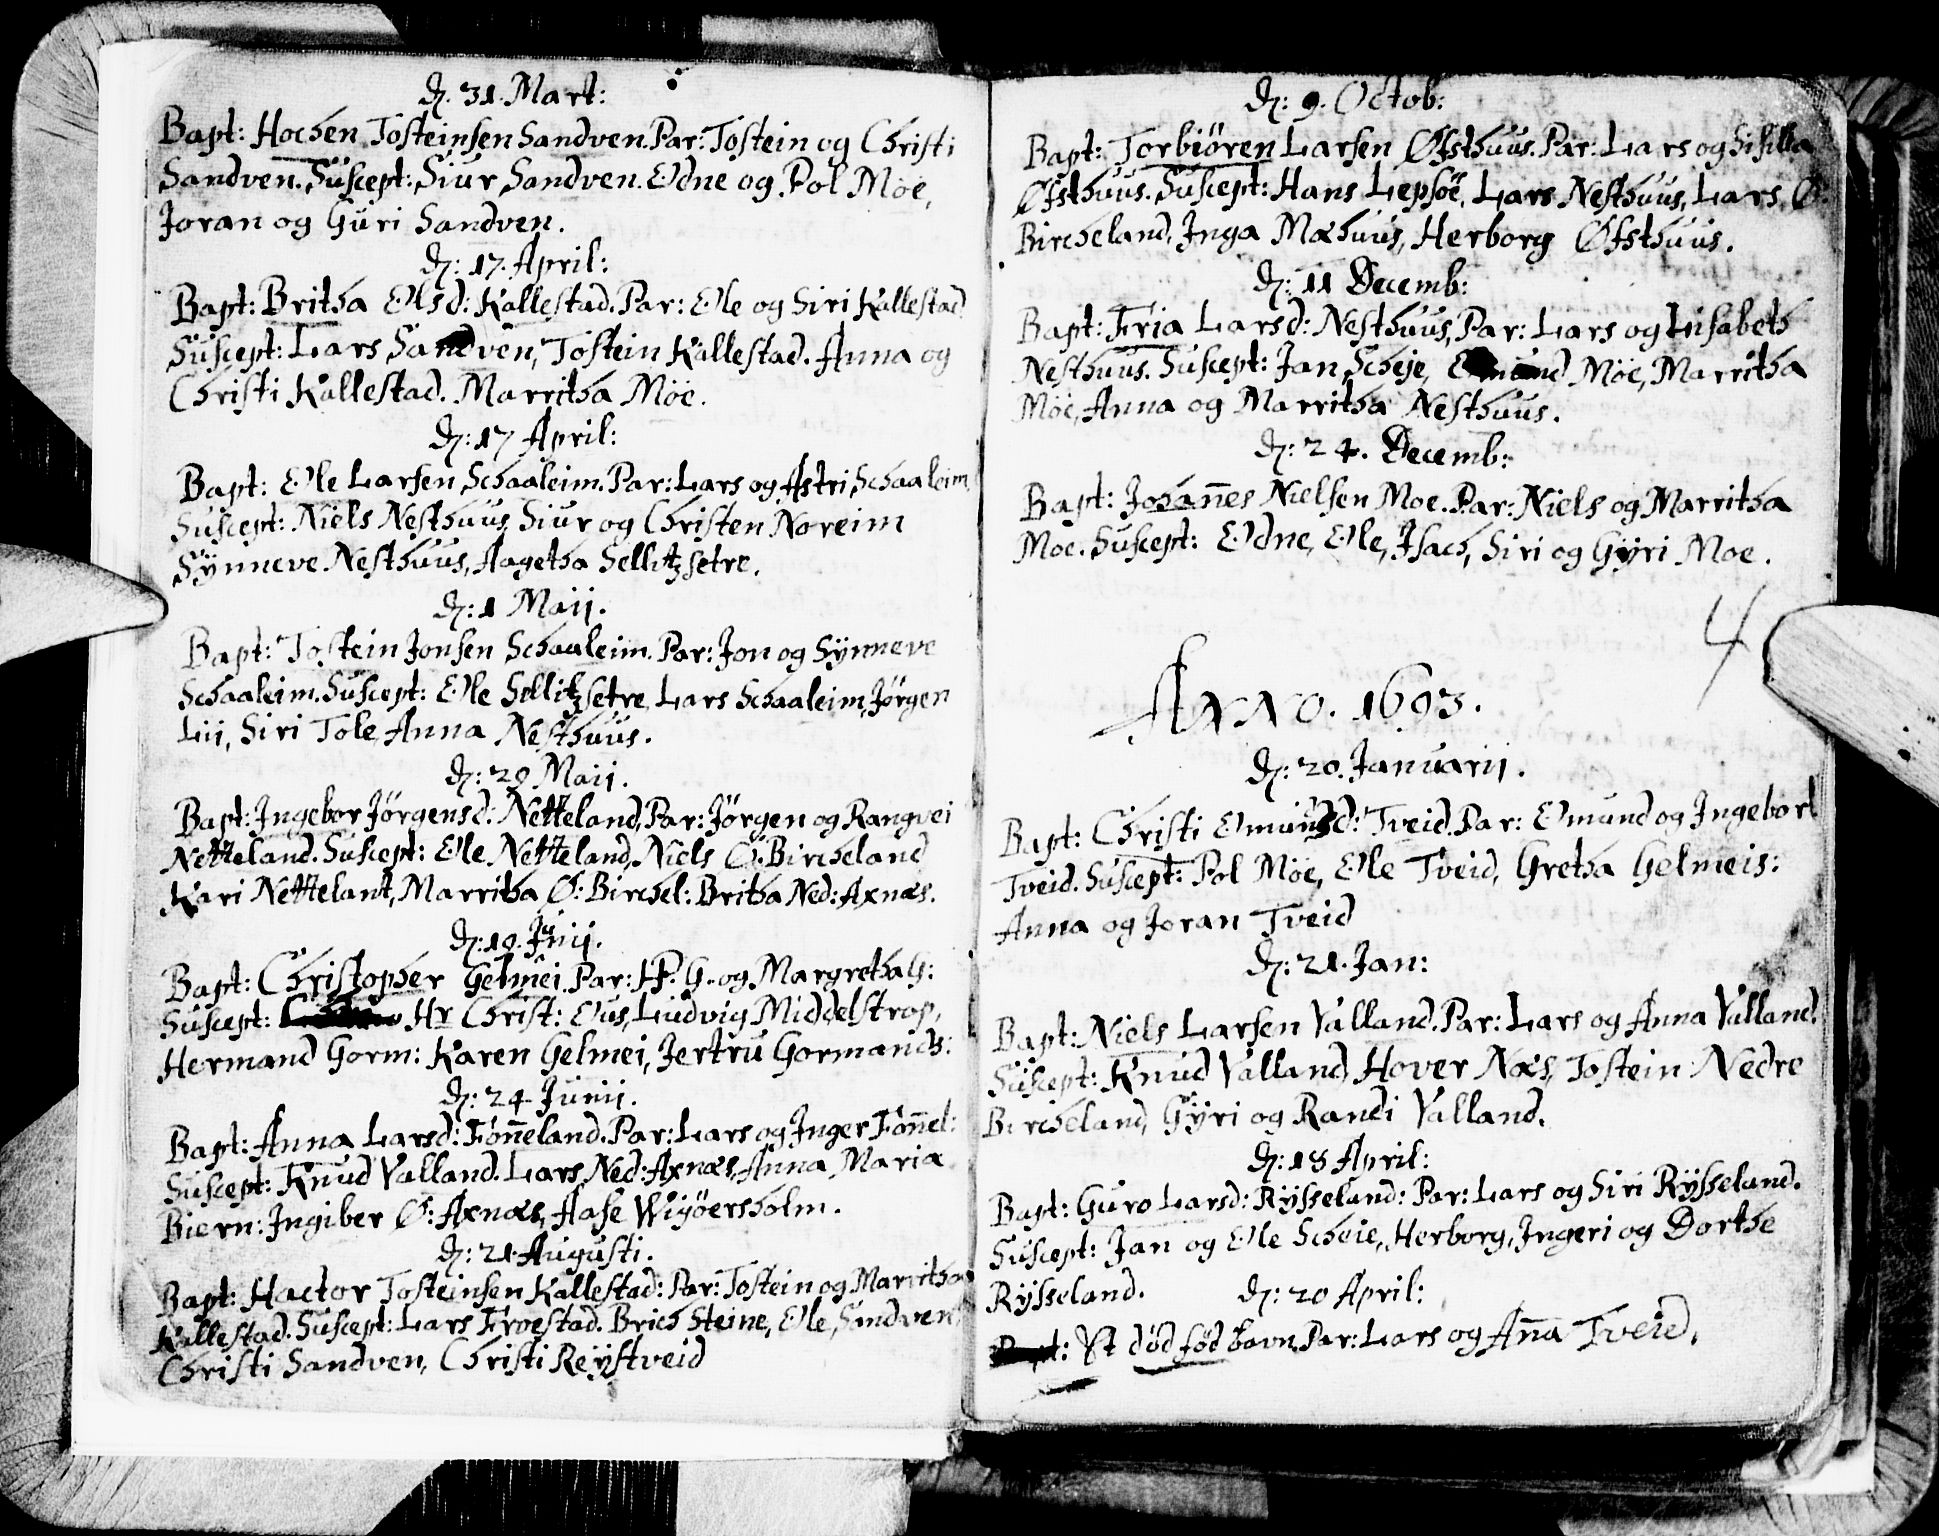 d. 31. Mart:
Bapt: Hochen Tosteinsen Sandven. Par: Tostein og Christi
Sandven. Suscept: Siur Sandven. Odne og Pol Möe,
Joran og Guri Sandven.
d: 17. April:
Bapt: Britha Olsd: Kallestad. Par: Ole og Siri Kallestad
Suscept: Lars Sandven, Tostein Kallestad. Anna og
Christi Kallestad. Marritha Möe.
d: 17 April:
Bapt: Ole Larsen Schaaleim. Par: Lars og Astri Schaaleim
Suscept: Niels Nesthuus, Siur og Christen Noreim
Synneve Nesthuus, Aagetha Sellitzsetre.
d: 1 Maij.
Bapt: Tostein Jonsen Schaaleim. Par: Jon og Synneve
Schaaleim. Suscept: Ole Sellitzsetre Lars Schaaleim, Jørgen
Lii, Siri Tole, Anna Nesthuus.
d: 29 Maij.
Bapt: Ingebor Jørgensd: Netteland, Par: Jørgen og Rangvei
Netteland. Suscept: Ole Netteland, Niels Ö. Bircheland
Kari Nettelant, Marritha Ø: Birchel: Britha Ned: Axnæs.
d: 19. Junij.
Bapt: Christopher Gelmei. Par: HP. G. og Margretha G:
Suscept: Hr Christ: Ous, Ludvig Middelstrop,
Hermand Gorm: Karen Gelmei, Jertru Gormands:
d: 24 Junij.
Bapt: Anna Larsd: Fonneland. Par: Lars og Inger Fonnel:
Suscept: Knud Valland. Lars Ned: Axnæs, Anna Maria
Biern: Ingiber Ø: Axnæs, Aase Wiyöersholm.
d: 21 Augusti.
Bapt: Hactor Tosteinsen Kallestad: Par: Tostein og Marritha
Kallestad. Suscept: Lars Froestad. Brich Steine, Ole Sandven,
Christi Sandven, Christi Reystveid
d: 9. Octob:
Bapt: Torbiören Larsen Øfsthuus. Par: Lars og Sisilla
Øfsthuus. Suscept: Hans Lepsöe, Lars Nesthuus, Lars Ø.
Bircheland, Inga Mæhuus, Herborg Øfsthuus.
d: 11 Decemb:
Bapt: Fria Larsd: Nesthuus, Par: Lars og Lisabeth
Nesthuus. Suscept: Jan Scheje, Omund Möe, Marritha
Möe, Anna og Marritha Nesthuus.
d: 24. Decemb:
Bapt: Johan̄es Nielsen Moe. Par: Niels og Marritha
Moe. Suscept: Odne, Ole, Isach, Siri og Gyri Moe.
4
Anno. 1693.
d: 20. Januarij.
Bapt: Christi Omundsd: Tveid. Par: Omund og Ingebort
Tveid. Suscept: Pol Möe, Ole Tveid, Gretha Gelmeis:
Anna og Joran Tveid
d: 21. Jan:
Bapt: Niels Larsen Valland. Par: Lars og Anna Valland.
Suscept: Knud Valland, Hover Næs, Tostein Nedre
Bircheland, Gyri og Randi Valland.
d: 18 April:
Bapt: Guro Larsd: Rysseland: Par: Lars og Siri Rysseland.
Suscept: Jan og Ole Scheie, Herborg, Ingeri og Dorthe
Rysseland. d: 20 April:
Et död föd barn, Par: Lars og An̄a Tveid.